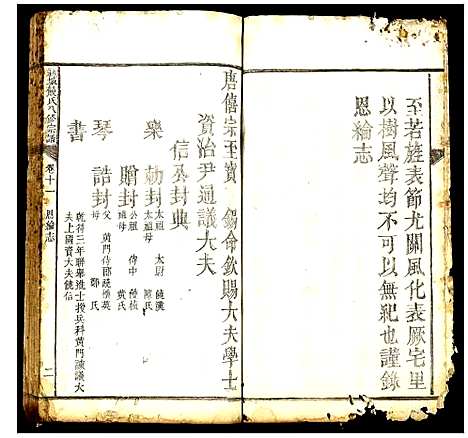 至若旌表節尤關風化表厥宅里
以樹風聲均不可以無紀也謹錄
恩綸志
唐僖宗玉寶 錫命欽賜大夫學士
資治尹通議大夫
信丞封典
樂 勅封 太祖 太尉 饒漢
太祖母 陳氏
琴 贈封 公祖 侍中 饒
祖母 黃氏
書 誥封 父 黃門侍郎 饒
母 鄒氏
乾符三年聯舉進士授兵科黃門諫議大
夫上國資大夫饒信
饒氏八修宗譜 卷十一 恩綸志 二